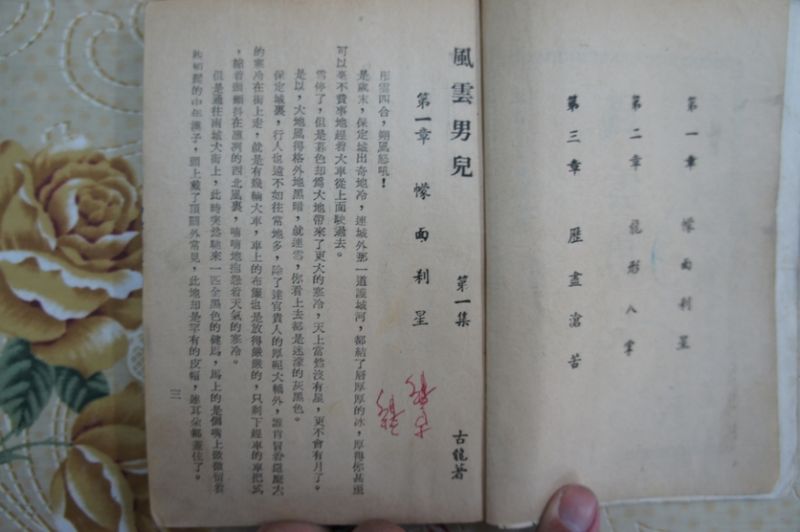 第一章　幪面利星
第二章　龍形八掌
第三章　歷盡滄苦
風雲男兒　第一集　古龍著
第一章　幪面利星
彤雲四合，朔風怒吼！
是歲末，保定城出奇地冷，連城外那一道護城河，都結了層厚厚的冰，厚得你甚至
可以毫不費事地趕着大車從上面駛過去。
雪停了，但是暮色却為大地帶來了更大的寒冷，天上當然沒有星，更不會有月了。
是以，大地顯得格外地黑暗，就連雪，你看上去都是迷濛的灰黑色。
保定城裏，行人也遠不如往常地多，除了達官貴人的厚絨大轎外，誰肯冒着這麼大
的寒冷在街上走，就是有幾輛大車，車上的布簾也是放得嚴嚴的，只剩下趕車的車把式
，縮着頭顫抖在凜冽的西北風裏，喃喃地抱怨着天氣的寒冷。
但是通往南城大街上，此時突然馳來一匹全黑色的健馬，馬上的是個嘴上微微留着
的中年漢子，頭上戴了頂關外常見，此地却是罕有的皮帽，連耳朵都蓋住了。
三
古龍